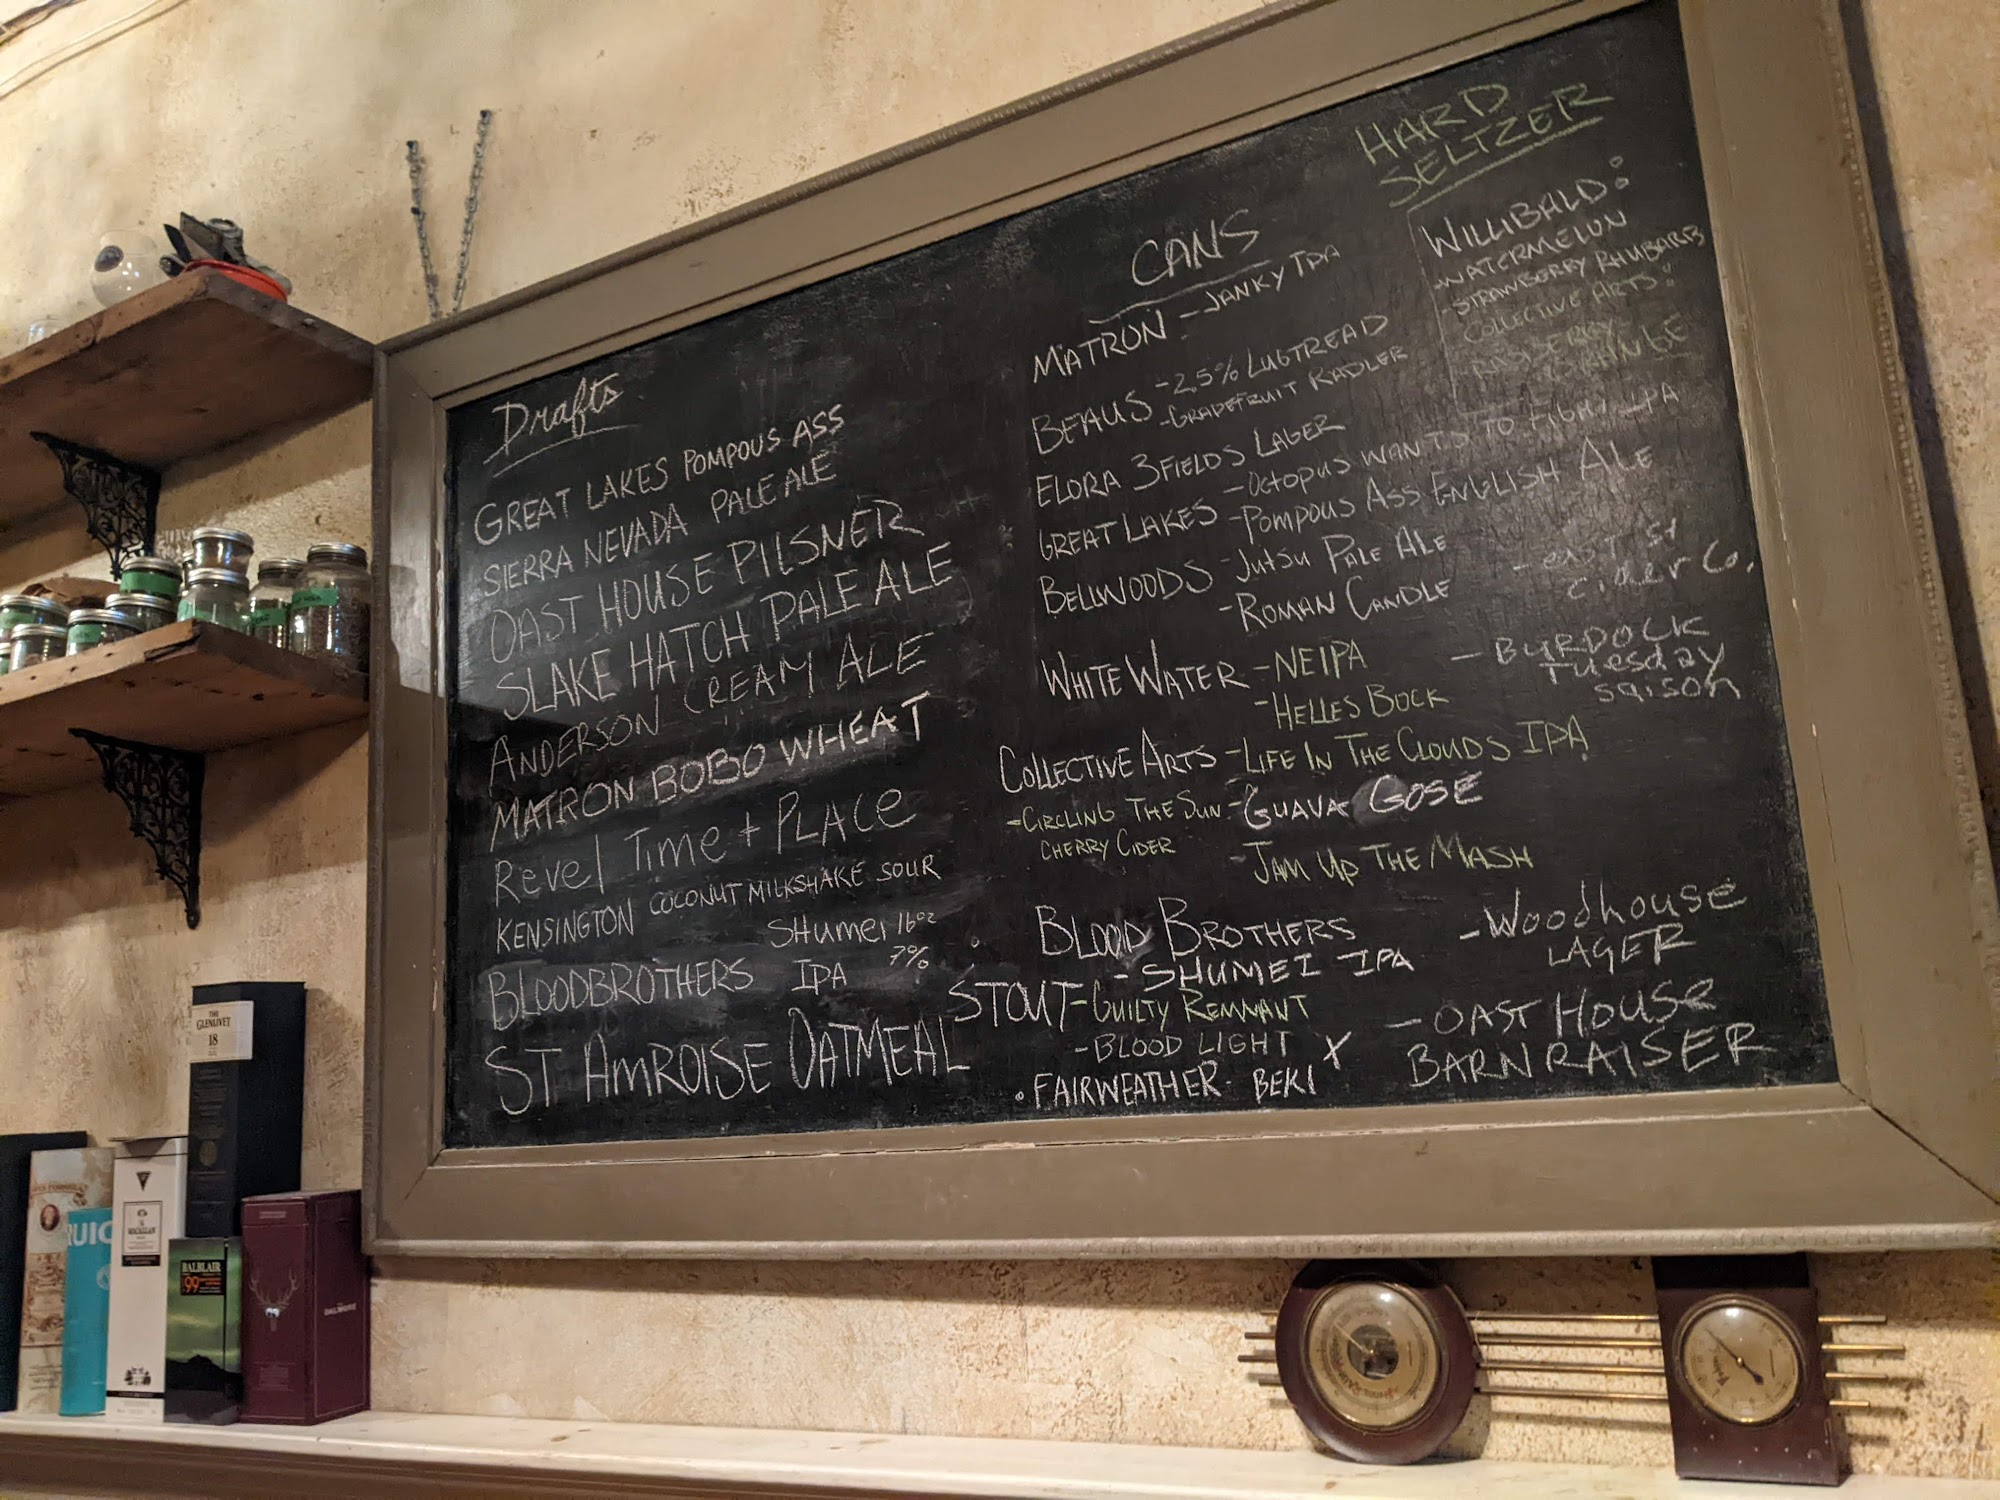 Drafts
GREAT LAKES POMPOUS ASS
SIERRA NEVADA PALE ALE
OAST HOUSE PILSNER
SLAKE HATCH PALE ALE
ANDERSON CREAM ALE
MATRON BOBO WHEAT
Revel Time + PLACe
KENSINGTON COCONUT MILKSHAKE SOUR
SHumei 16oz
BLOODBROTHERS IPA 7%
ST AMROISE OATMEAL STOUT
CANS
MATRON - JANKY IPA
BEAUS - 2.5% LUGTREAD
- GRADEFRUIT RADLER
ELORA 3FIELDS LAGER
GREAT LAKES - OCTOPUS WANTS TO FIGHT IPA
- POMPOUS ASS ENGLISH ALE
BELLWOODS - JUTSU PALE ALE
- ROMAN CANDLE
WHITE WATER - NEIPA
- HELLES BOCK
COLLECTIVE ARTS - LIFE IN THE CLOUDS IPA
- CIRCLING THE SUN
CHERRY CIDER
- GUAVA GOSE
- JAM UP THE MASH
BLOOD BROTHERS
- SHUMEI IPA
- GUILTY REMNANT
- BLOOD LIGHT X
• FAIRWEATHER - BEKI
HARD
SELTZER
WILLIBALD:
- WATERMELON
- STRAWBERRY RHUBARB
COLLECTIVE ARTS:
- east st
cider Co.
- BURDOCK
Tuesday
saison
- Woodhouse
LAGER
- OAST House
BARNRAISER
THE
GLENLIVET
18
QUIC
MACALLAN
BALBLAIR
99
DALMORE